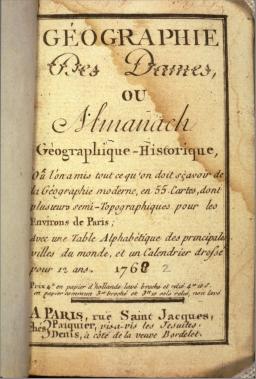 GÉOGRAPHIE
Des Dames,
OU
Almanach
Géographique-Historique,
Où l'on a mis tout ce qu'on doit sçavoir de
la Géographie moderne, en 55. Cartes, dont
plusieurs semi-Topographiques pour les
Environs de Paris;
avec une Table Alphabétique des principales
villes du monde, et un Calendrier dressé
pour 12 ans. 1762
Prix 4ᵗᵗ en papier d'hollande lavé broché et relié
en papier commun broché et relié, non lavé
A PARIS, rue Saint Jacques,
chés Pasquier, vis-à-vis les Jesuites.
Denis, à côté de la veuve Bordelet.